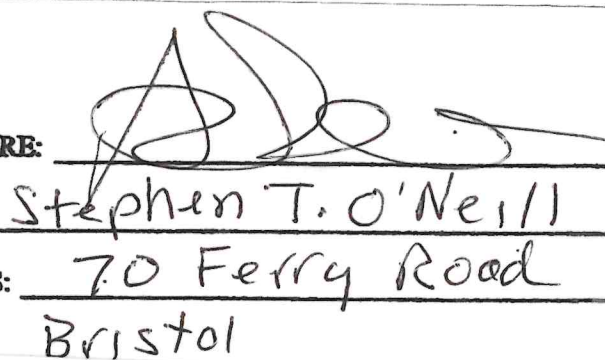 RE:
Stephen T. O'Neill
S: 70 Ferry Road
Bristol